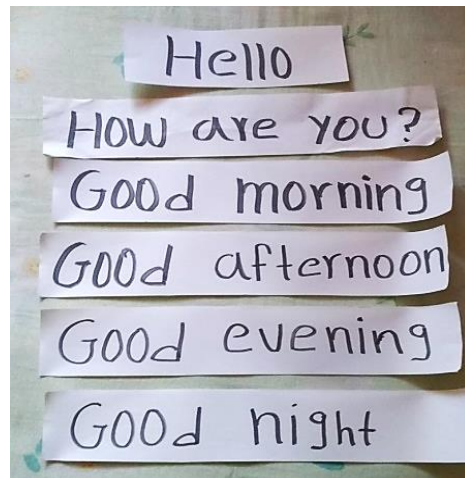 Hello
How are you?
Good morning
Good afternoon
Good evening
Good night